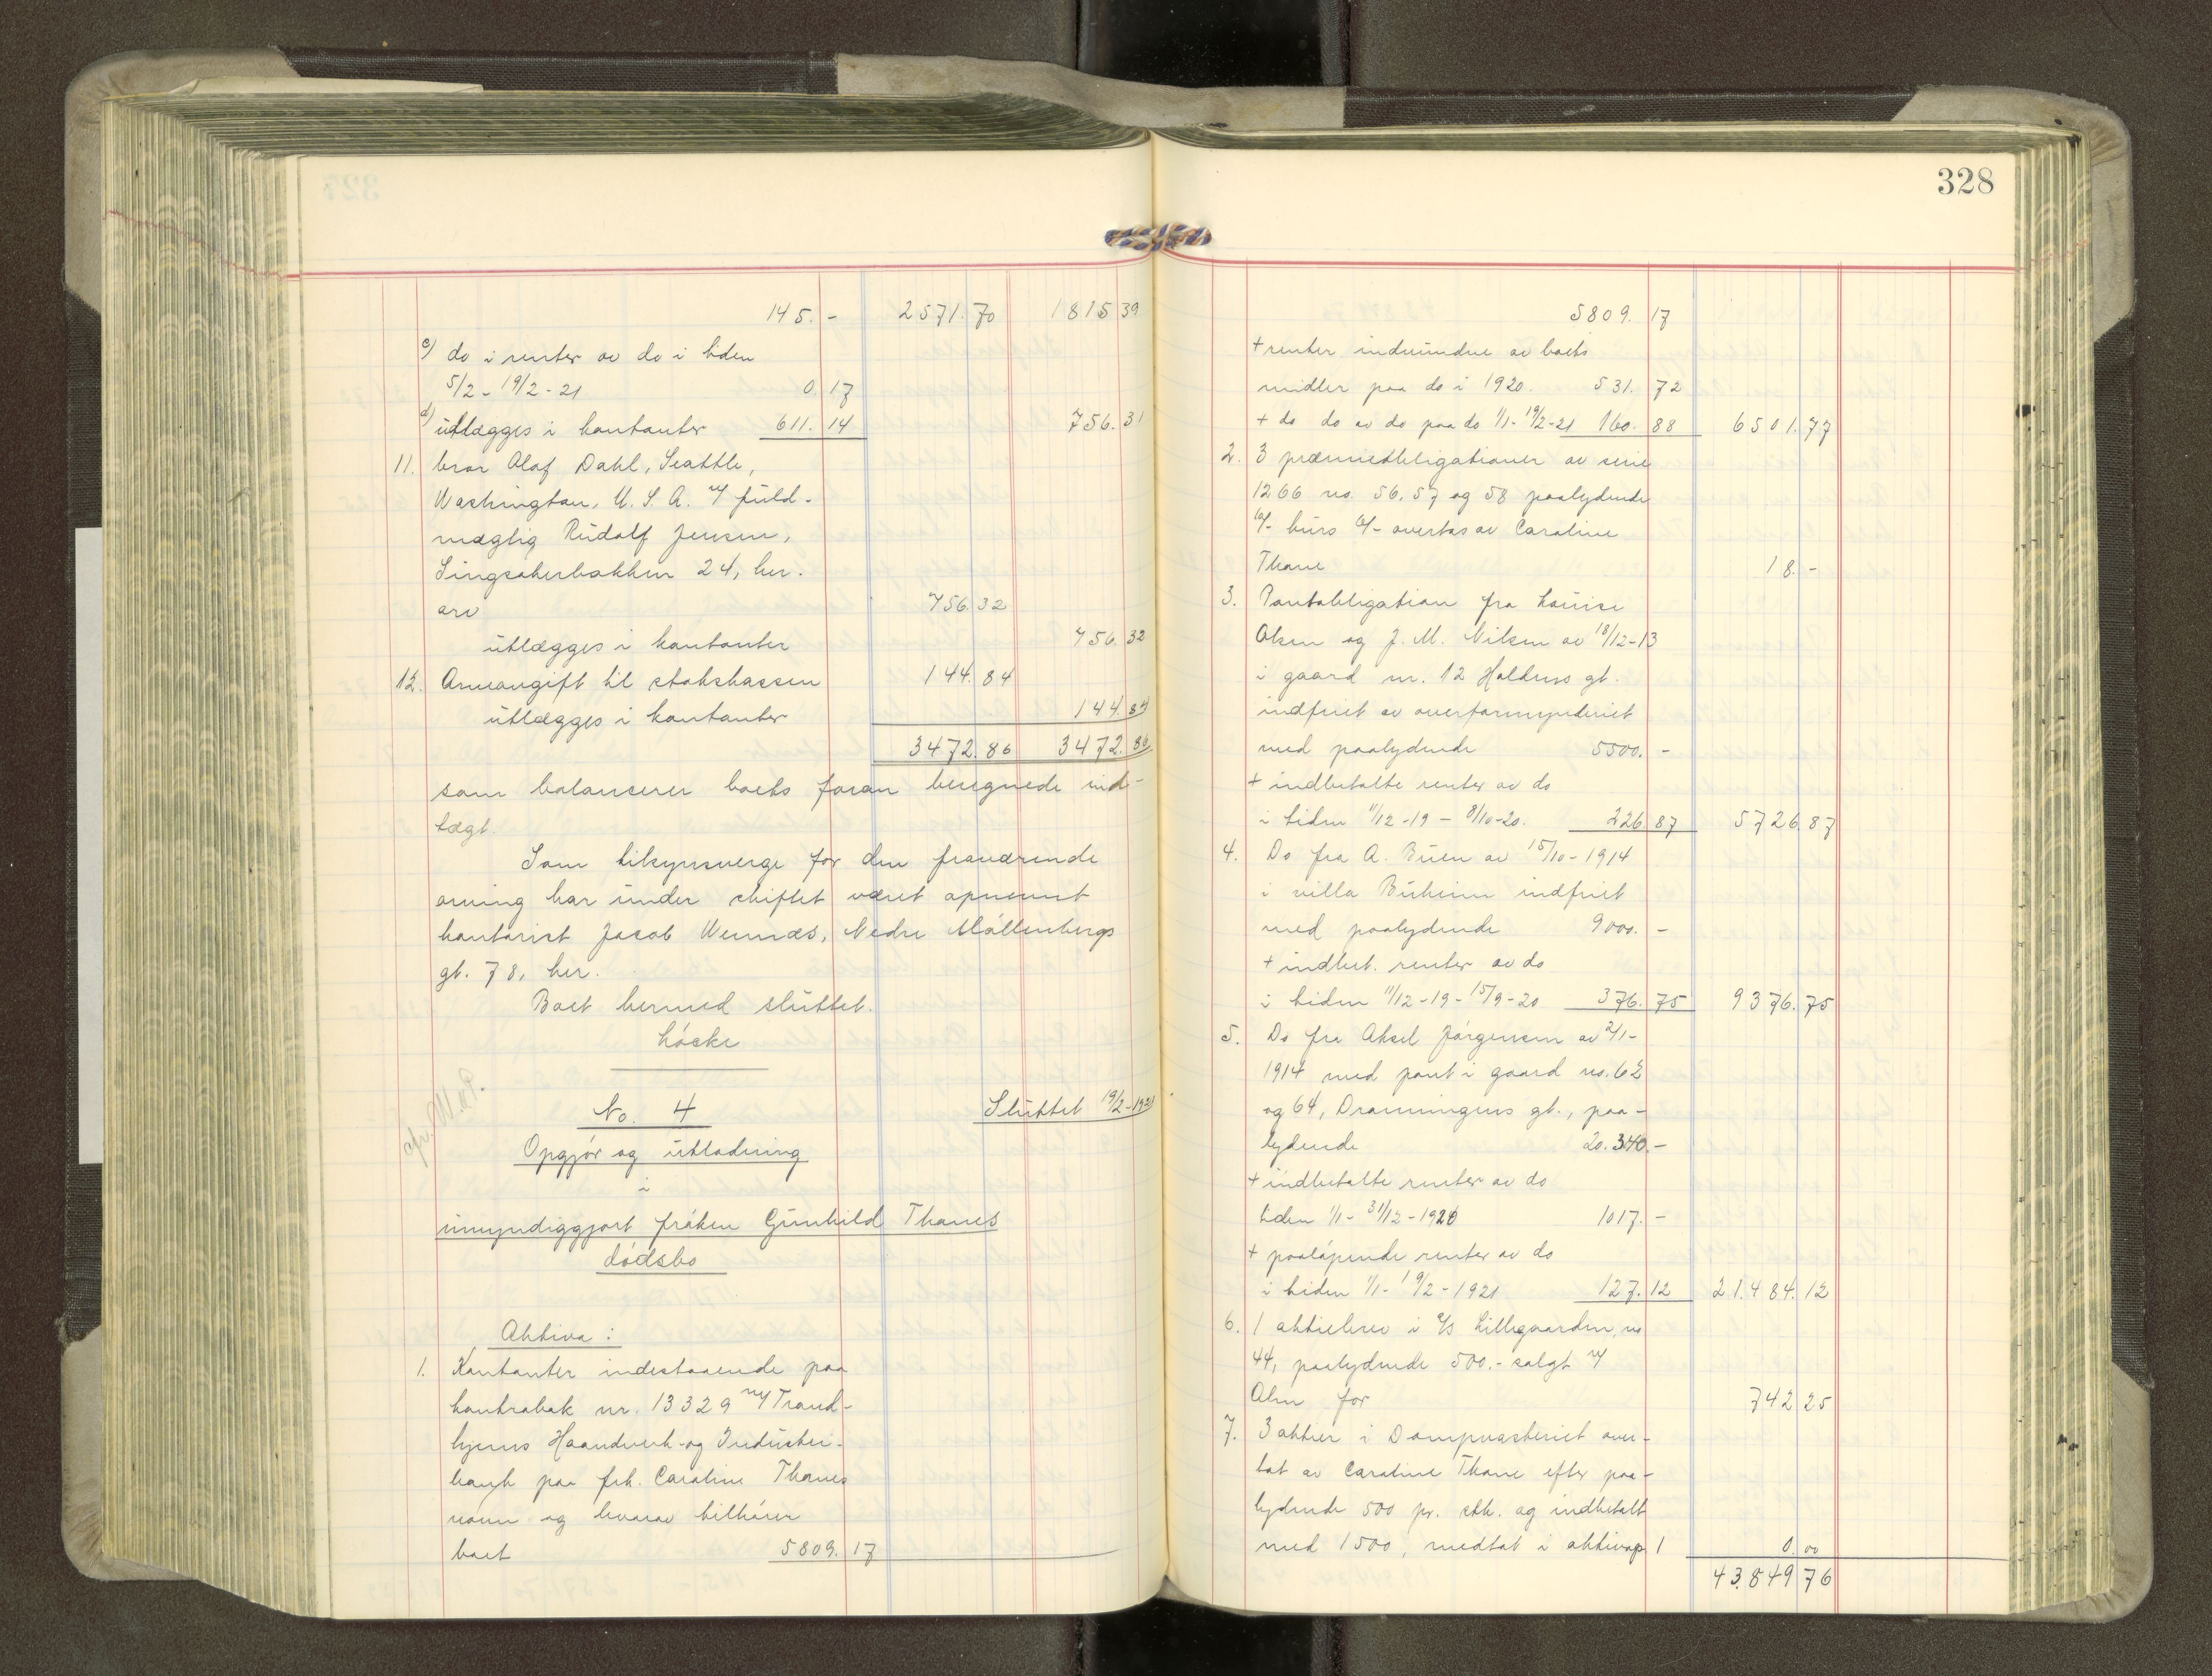 145.- 2571.70 1815.39
c) do i renter av do i tiden
5/2 - 19/2 - 21 0.17
d) utlægges i kontanter 611.14 756.31
11. bror Olaf Dahl, Seattle,
Washington, U.S.A. v/ fuld-
mægtig Rudolf Jensen,
Singsakerbakken 24, her.
arv 756.32
utlægges i kontanter 756.32
12. Arveavgift til statskassen 144.84
utlægges i kontanter 144.84
3472.86 3472.86
som balanserer boets foran beregnede ind-
tægt.
Som tilsynsverge for den fraværende
arving har under skiftet været opnevnt
kontorist Jacob Wennæs, Nedre Møllenbergs
gt. 78, her.
Boet hermed sluttet.
Løcke
No. 4 Sluttet 19/2-1921
Opgjør og utlodning
i
umyndiggjort frøken Gunhild Thanes
dødsbo
Aktiva:
1. Kontanter indestaaende paa
kontrabok nr. 13329 v/ Trond-
hjems Haandverk- og Industri-
bank paa frk. Caroline Thanes
navn og hvorav tilhører
boet 5809.17
328
5809.17
+ renter indvundne av boets
midler paa do i 1920. 531.72
+ do do av do paa do 1/1-19/2-21 160.88 6501.77
2. 3 præmieobligationer av serie
1266 no. 56, 57 og 58 paalydende
6/- kurs 6/- overtas av Caroline
Thane 18.-
3. Pantobligation fra Louise
Olsen og J. M. Nilsen av 18/12-13
i gaard nr. 12 Holdens gt.
indfriet av overformynderiet
med paalydende 5500.-
+ indbetalte renter av do
i tiden 11/12-19 - 8/10-20. 226.87 5726.87
4. Do fra A. Buen av 15/10-1914
i villa Buheim indfriet
med paalydende 9000.-
+ indbet. renter av do
i tiden 11/12-19-15/9-20 376.75 9376.75
5. Do fra Aksel Jørgensen av 2/1-
1914 med pant i gaard no. 62
og 64, Dronningens gt., paa-
lydende 20.340.-
+ indbetalte renter av do
tiden 1/1-31/12-1920 1017.-
+ paaløpende renter av do
i tiden 1/1-19/2-1921 127.12 21.484.12
6. 1 aktiebrev i A/S Lillegaarden, no
44, paalydende 500.- solgt v/
Alm for 742.25
7. 3 aktier i Dampvaskeriet over-
tat av Caroline Thane efter paa-
lydende 500 pr. stk. og indbetalt
med 1500, medtat i aktivap. 1 0.00
43.849.76